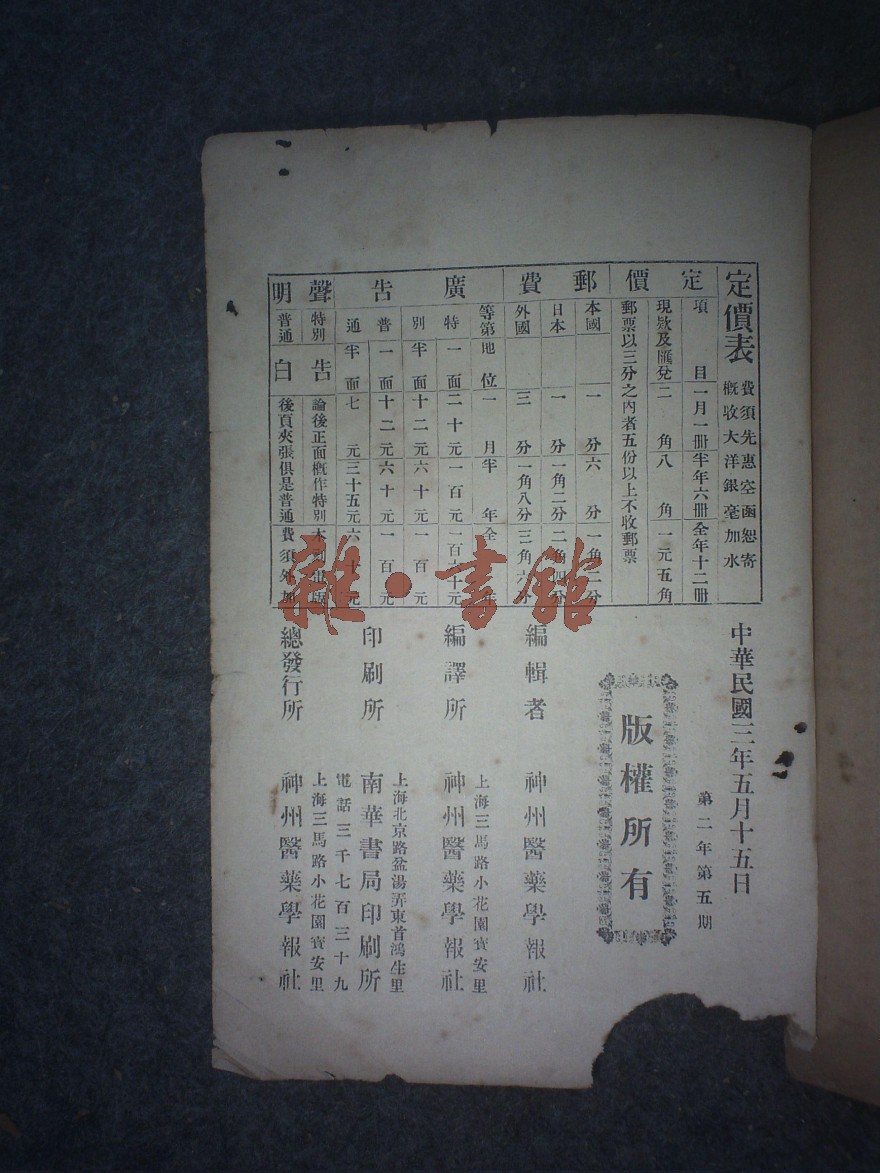 定價表
費須先惠空函恕寄
概收大洋銀毫加水
定價
項目 一月一冊 半年六冊 全年十二冊
現欵及匯兌 二角 八角 一元五角
郵票以三分之內者五份以上不收郵票
郵費
本國 一分 六分 一角二分
日本 一分 一角二分 二角四分
外國 三分 一角八分 三角六分
廣告
等第 地位 一月 半年 全
特別 一面 二十元 一百元 一百六十元
半面 十二元 六十元 一百元
普通 一面 十二元 六十元 一百元
半面 七元 三十五元 六十元
聲明
特別 告白 論後正面概作特別 木刻 版
普通 後頁夾張俱是普通 費須外加
中華民國三年五月十五日
第二年第五期
版權所有
編輯者 神州醫藥學報社
上海三馬路小花園寶安里
編譯所 神州醫藥學報社
上海北京路盆湯弄東首鴻生里
印刷所 南華書局印刷所
電話三千七百三十九
上海三馬路小花園寶安里
總發行所 神州醫藥學報社
雜·書館